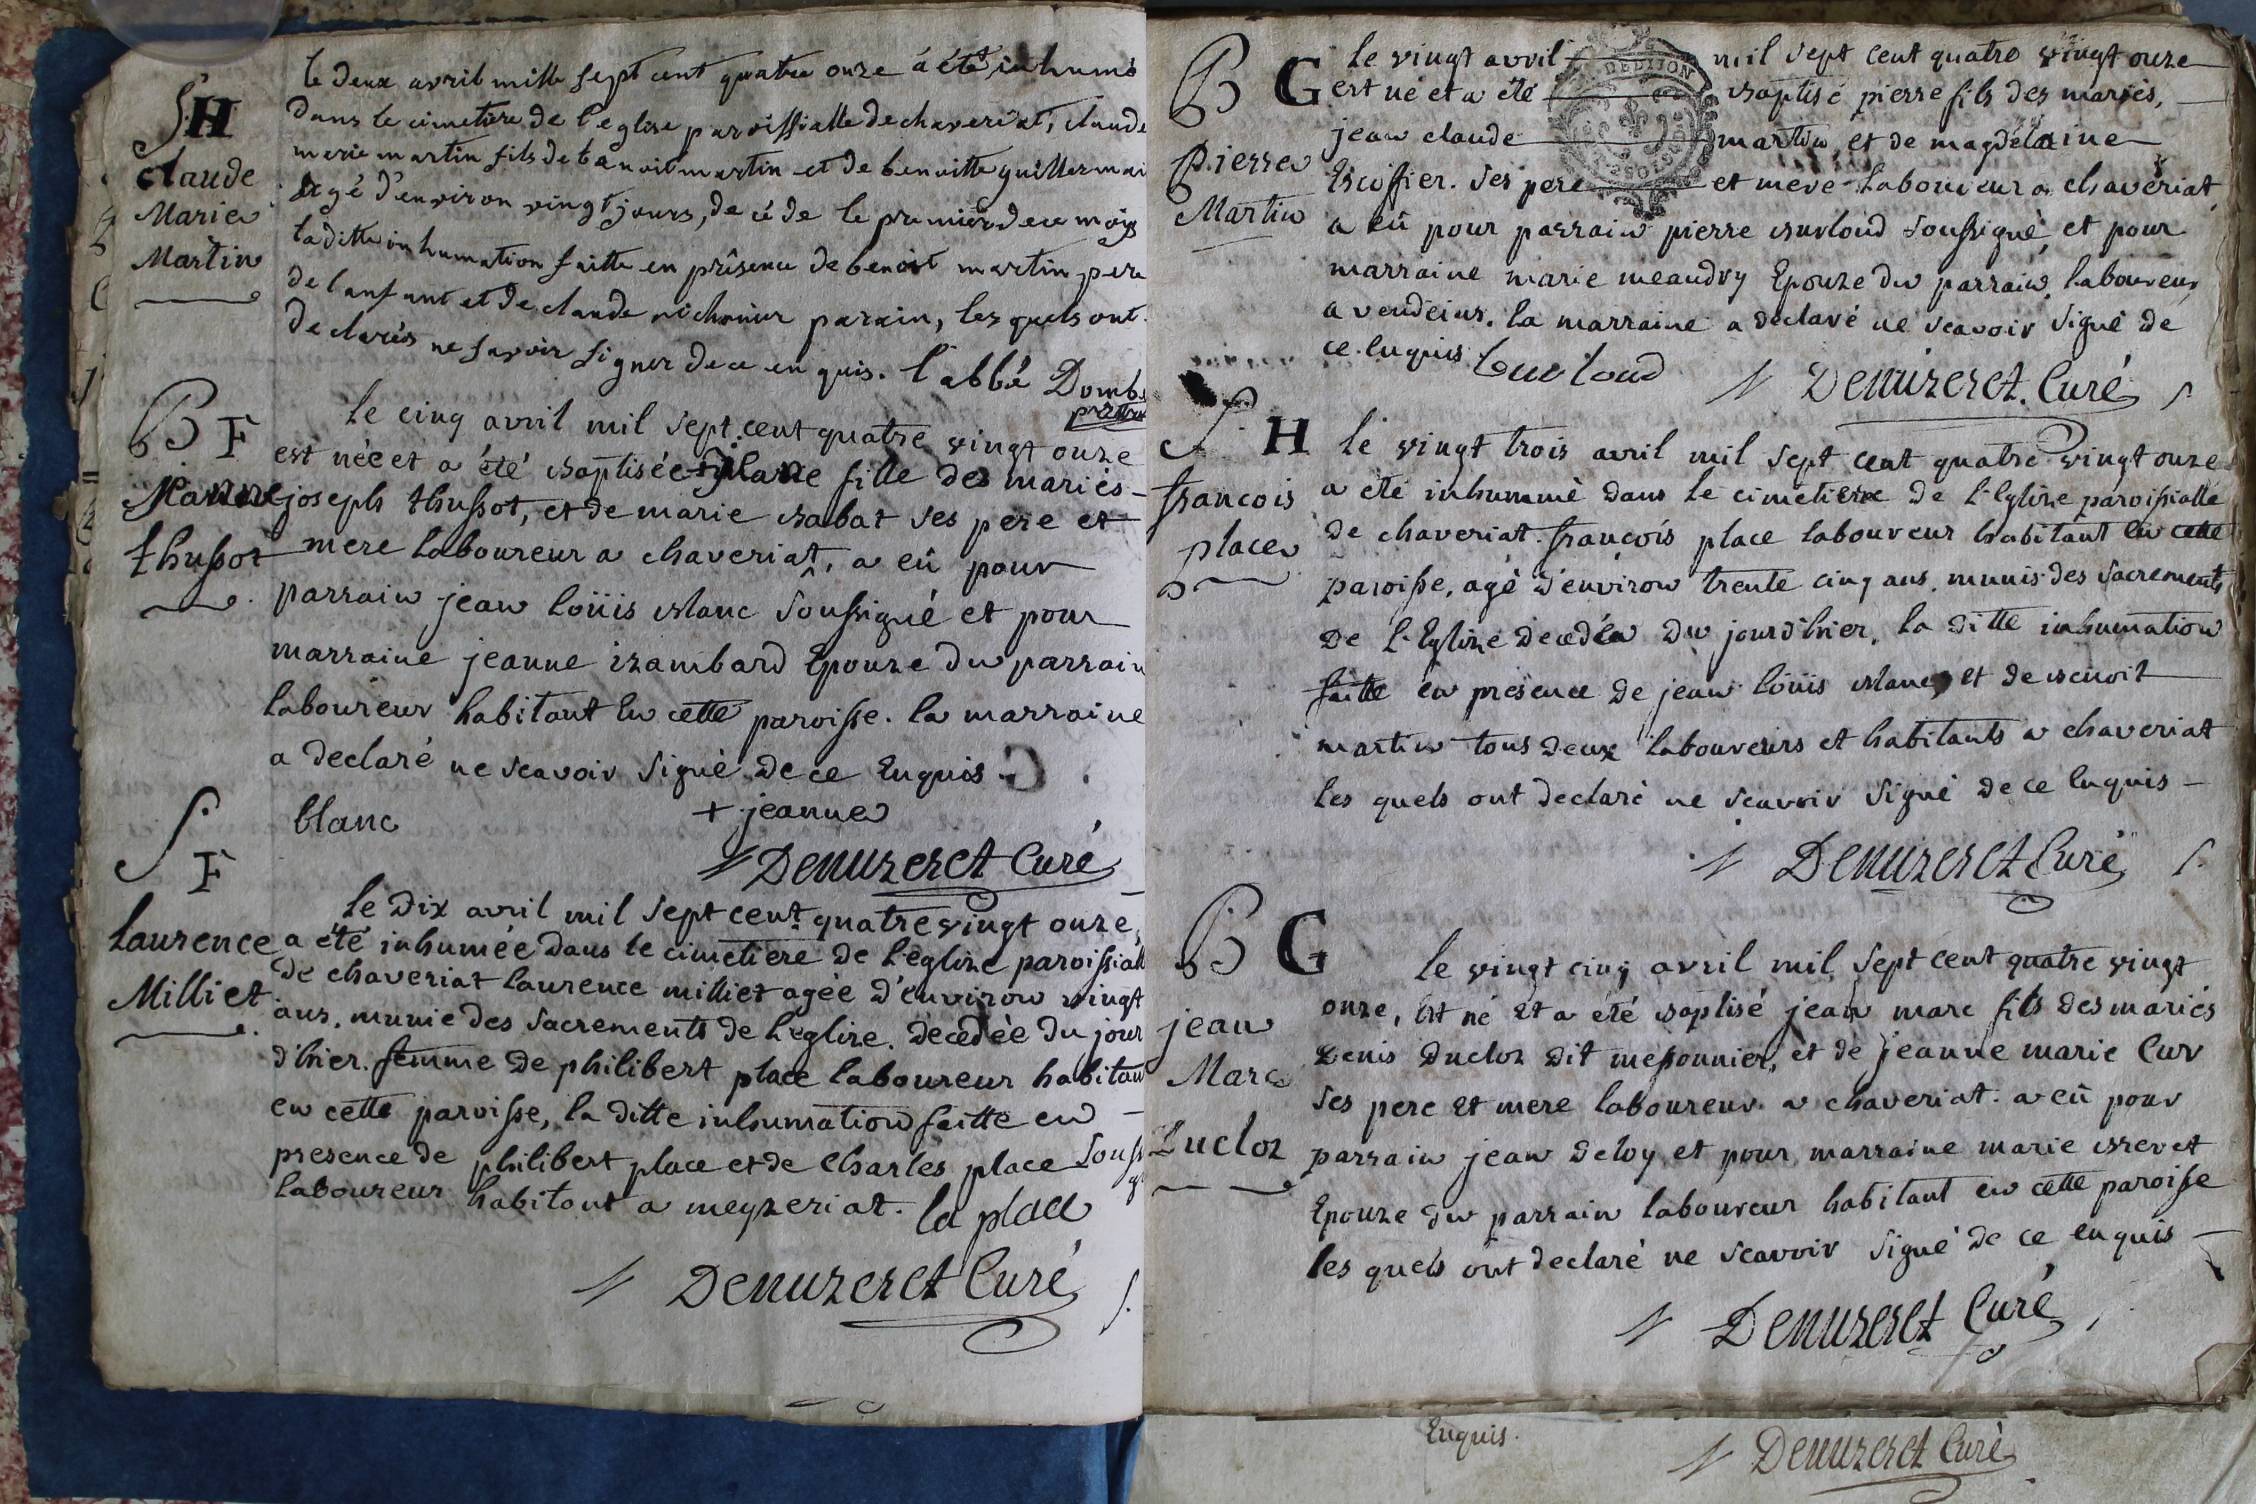 S. H
Claude
Marie
Martin
le deux avril mille sept cent quatre onze á été inhumé
dans le cimetiere de l'eglise paroissialle de chaveriat, claude
marie martin fils de benoit martin et de benoitte guillermai
agé d'environ vingt jours, decédé le premier de ce moys
la ditte inhumation faitte en présence de benoit martin pere
de l'anfant et de claude michoux parain, lesquels ont
declarés ne savoir signer de ce enquis. l'abbé Domb
pretre
B F
Marie
thussot
le cinq avril mil sept cent quatre vingt onze
est née et a été baptisée + Marie fille des mariés
joseph thussot, et de marie rabat ses pere et
mere laboureur a chaveriat, a eû pour
parrain jean loüis blanc soussigné et pour
marraine jeanne izambard Epouze du parrain
laboureur habitant En cette paroisse. la marraine
a declaré ne scavoir signé de ce Enquis
blanc + jeanne
Denuzeret Curé
S.
F
Laurence
Milliet
le dix avril mil sept cent quatre vingt onze,
a été inhumée dans le cimetiere de l'eglize paroissiall
de chaveriat laurence milliet agée d'environ vingt
ans, munie des sacrements de l'eglize. decedée du jour
d'hier. femme de philibert place laboureur habitan
en cette paroisse, la ditte inhumation faitte en
presence de philibert place et de Charles place souss
laboureur habitant a meyzeriat. la place
Denuzeret Curé
B G
Pierre
Martin
le vingt avril mil sept cent quatre vingt onze
DE DIJON
est né et a été baptisé pierre fils des mariés,
jean claude martin, et de magdelaine
Escoffier. ses pere et mere laboureur a chavériat,
a eû pour parrain pierre burloud soussigné, et pour
marraine marie meaudry Epouze du parrain, laboureur
a vendeins. la marraine a declaré ne scavoir signé de
ce. Enquis Burloud
Denuzeret. Curé
S. H
francois
place
le vingt trois avril mil sept cent quatre vingt onze
a été inhummé dans le cimetiere de l'Eglize paroissialle
de chaveriat. françois place laboureur habitant En cette
paroisse, agé d'environ trente cinq ans. munis des sacrements
de l'Eglize decedéa du jourd'hier, la ditte inhumation
faitte en presence de jean loüis blanc, et de benoit
martin tous deux laboureurs et habitants a chaveriat
les quels ont declaré ne scavoir signé de ce Enquis
Denuzeret Curé
B G
jean
Marc
Ducloz
le vingt cinq avril mil sept cent quatre vingt
onze, Est né Et a été baptisé jean marc fils des mariés
Denis Ducloz dit messonnier, et de jeanne marie Cur
ses pere Et mere laboureur a chaveriat. a eû pour
parrain jean deloy et pour marraine marie brevet
Epouze du parrain laboureur habitant en cette paroisse
les quels ont declaré ne scavoir signé de ce enquis
Denuzeret Curé
Enquis.
Denuzeret Curé